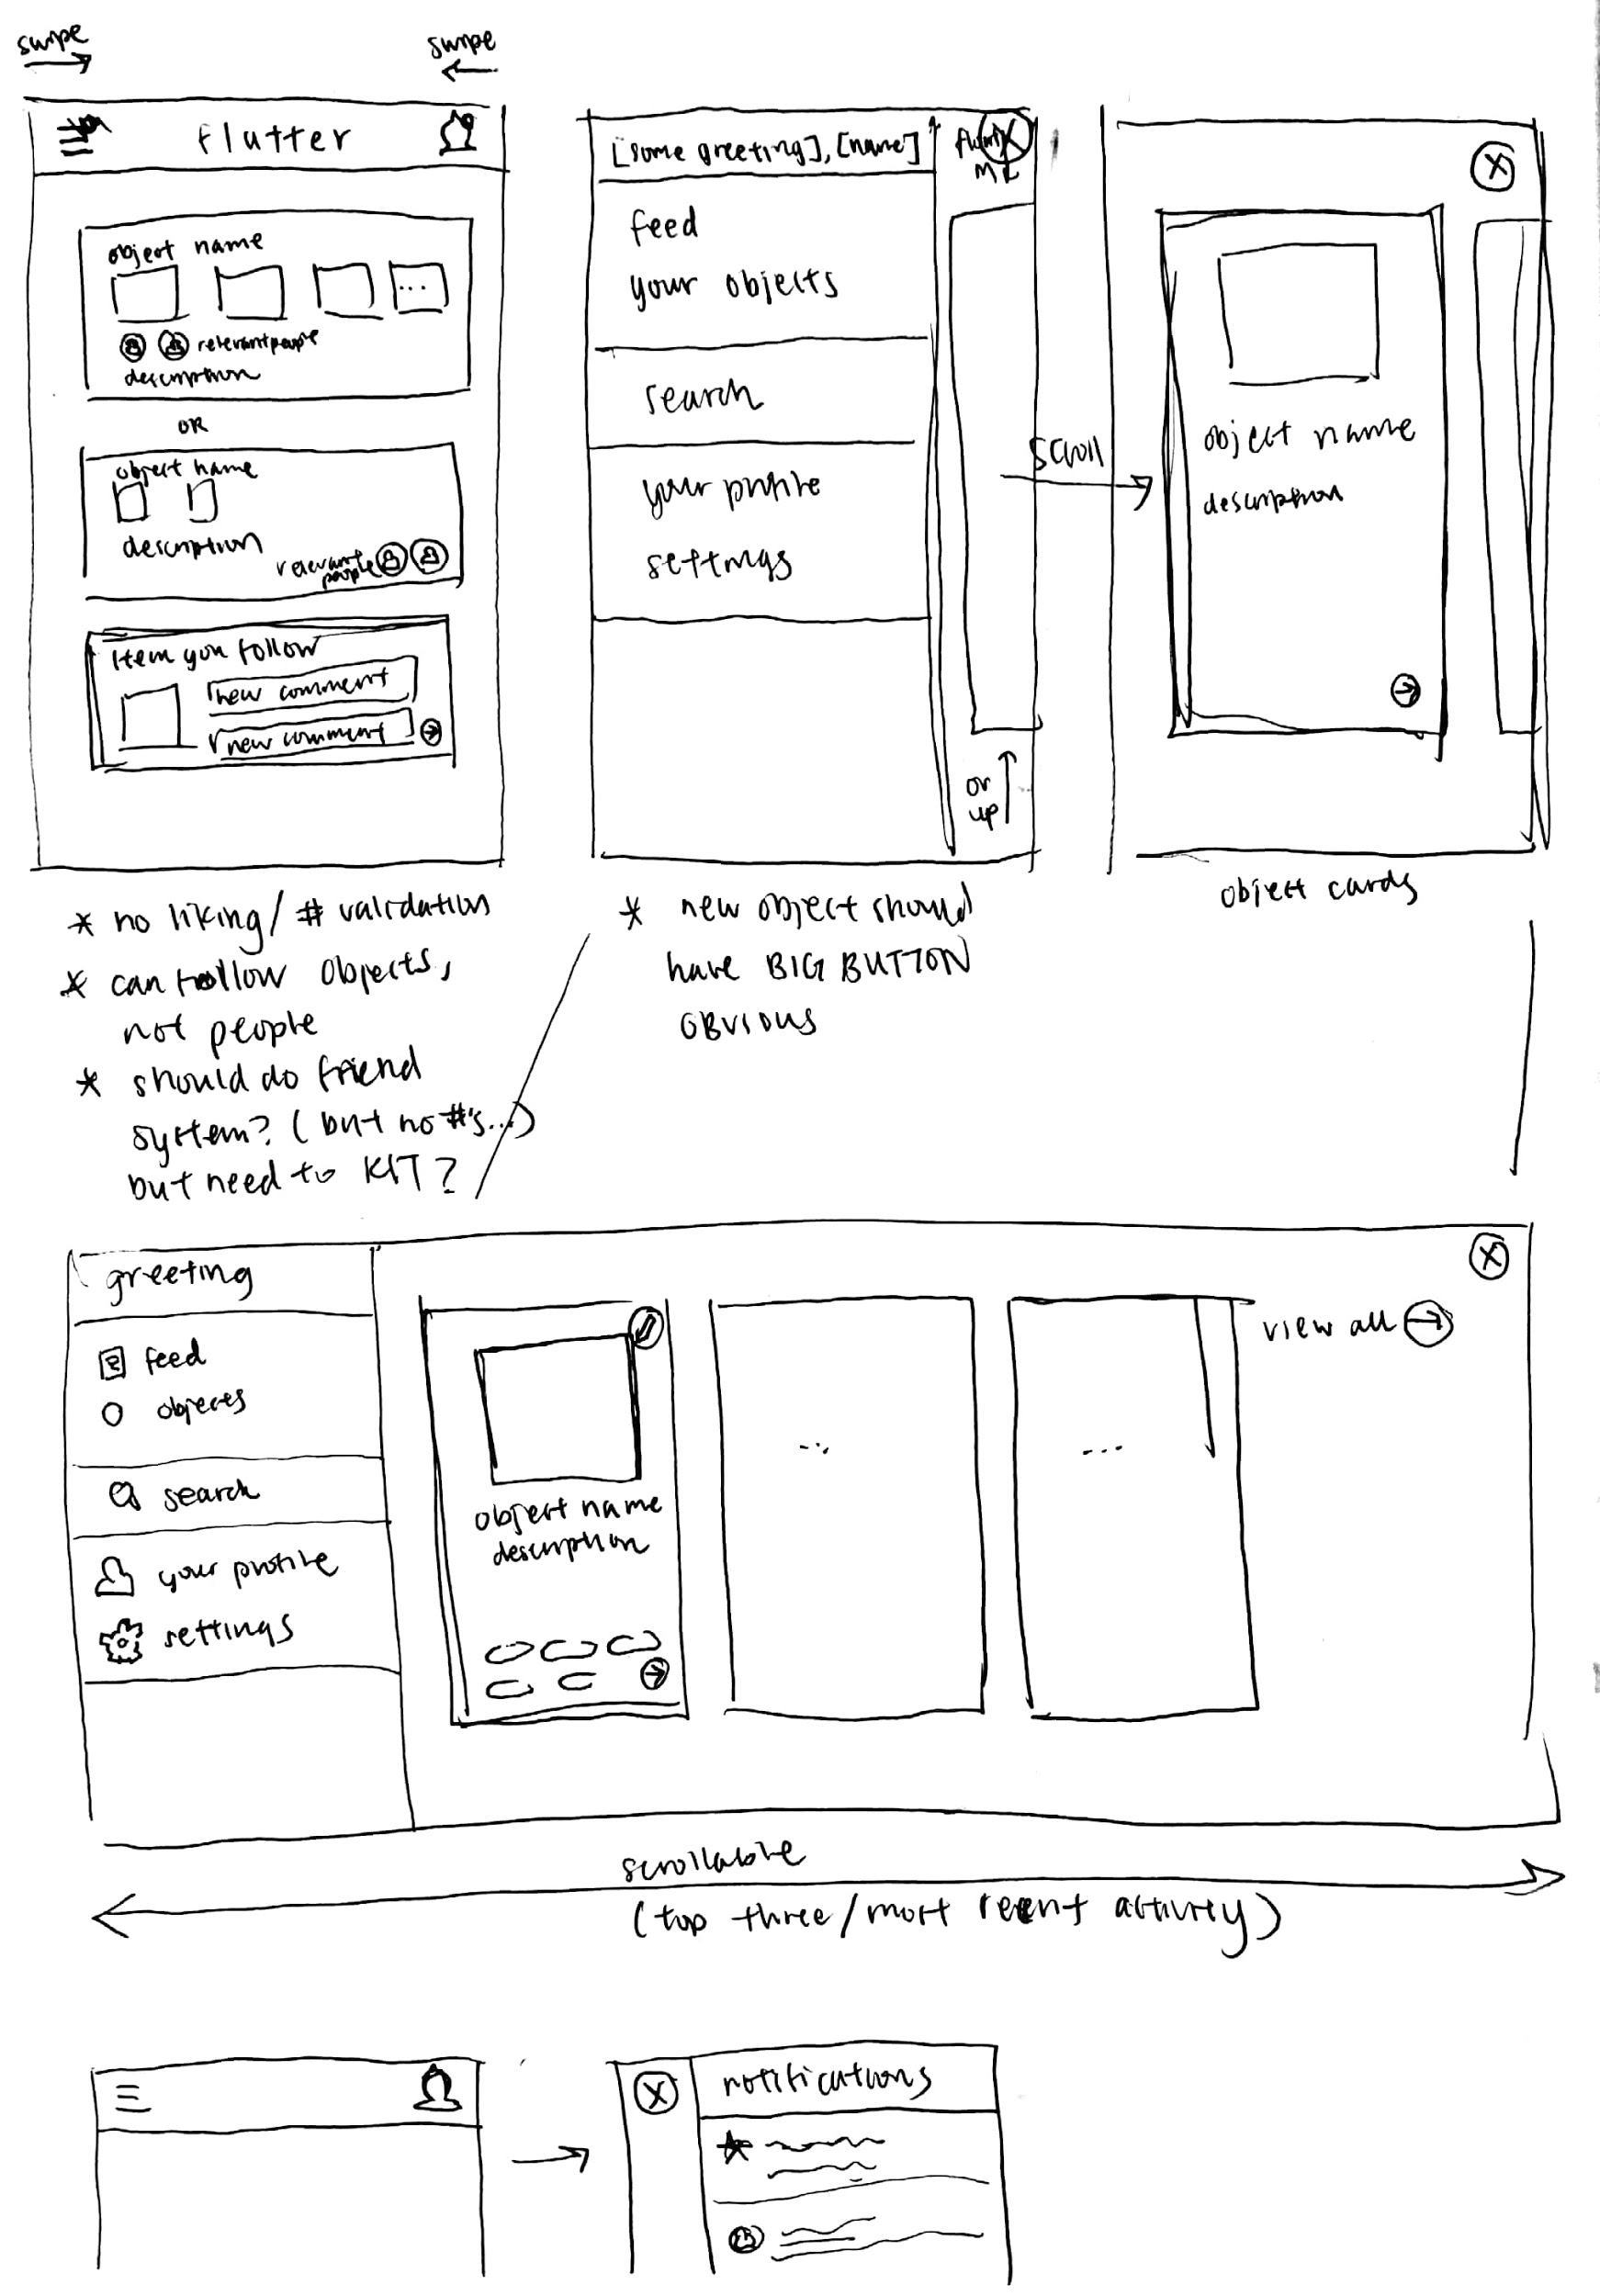 swipe
swipe
flutter
object name
...
relevant people
description
OR
object name
description
relevant
people
item you follow
new comment
new comment
* no liking/# validation
* can follow objects,
not people
* should do friend
system? (but no #'s...)
but need to KIT?
[some greeting], [name]
X
feed
your objects
search
your profile
settings
or
up
* new object should
have BIG BUTTON
OBVIOUS
scroll
X
object name
description
object cards
greeting
feed
objects
search
your profile
settings
object name
description
...
...
view all
X
scrollable
(top three/most recent activity)
X
notifications